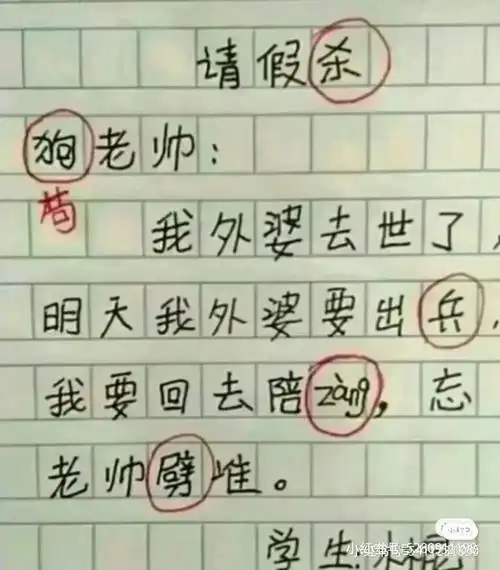 请假杀
狗老帅：
苟
我外婆去世了，
明天我外婆要出兵，
我要回去陪zàng，忘
老帅劈准。
学生
小红书